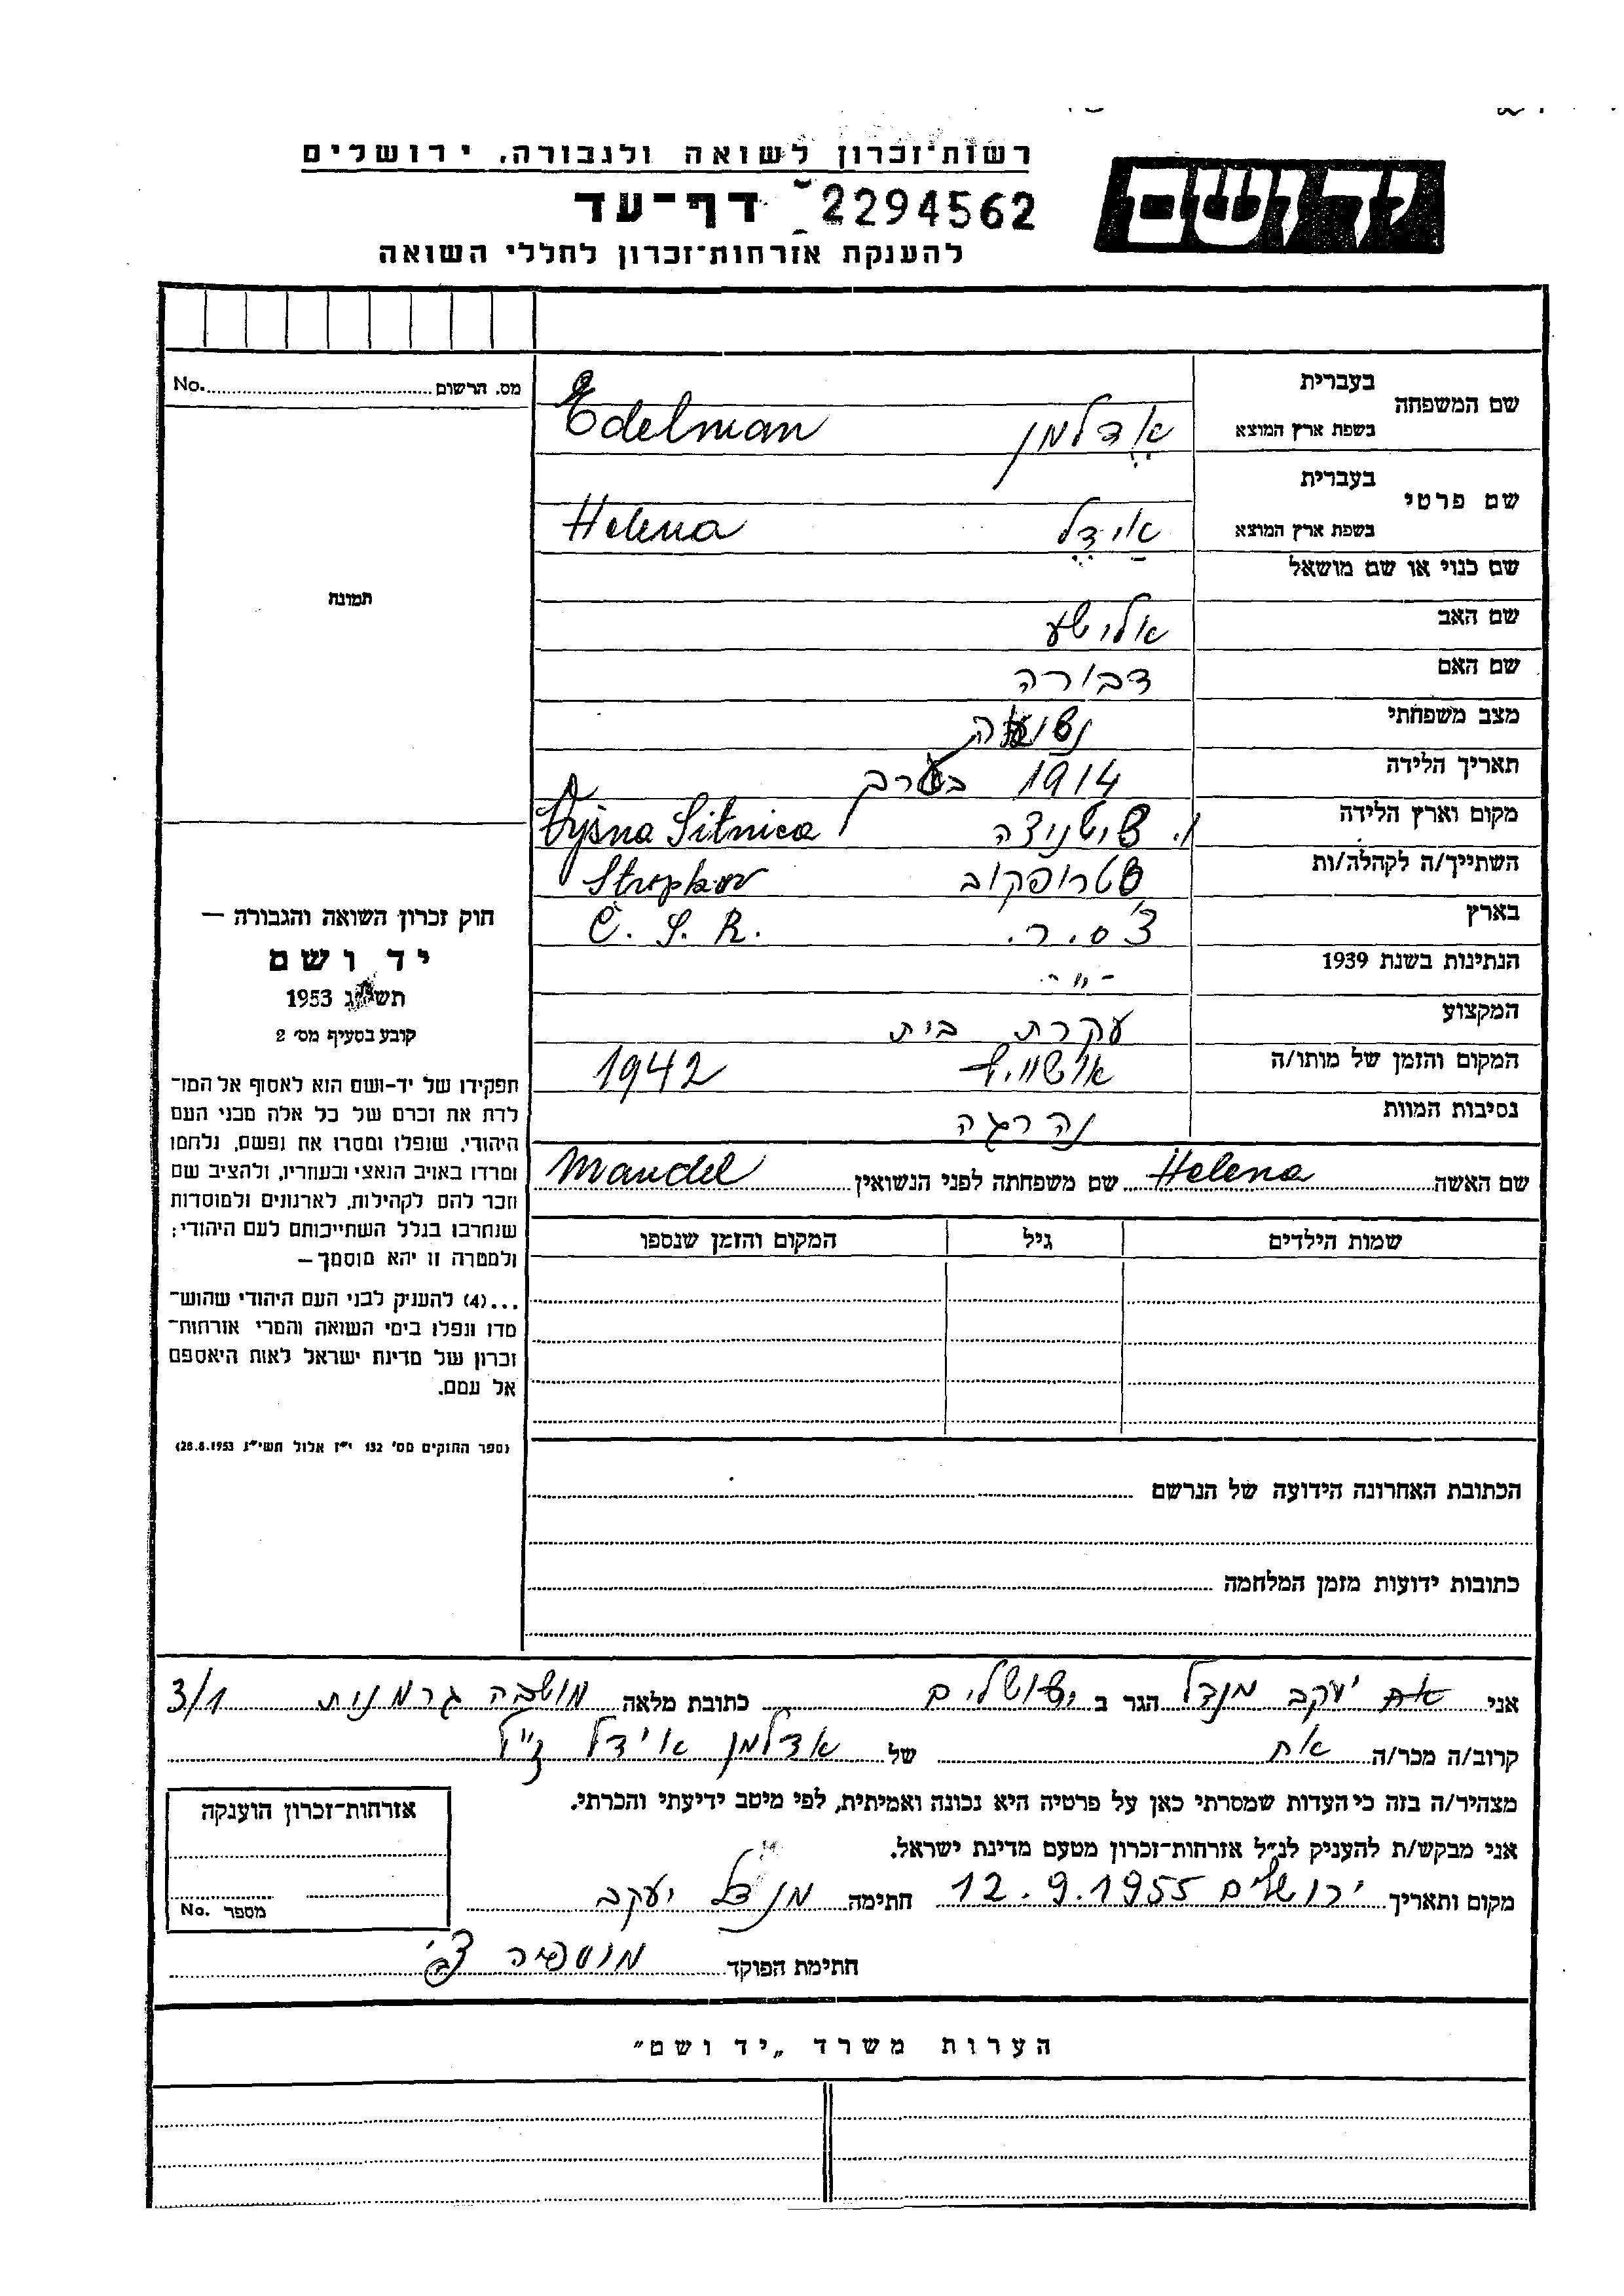 רשות־זכרון לשואה ולגבורה, ירושלים
ידושם
דף־עד 2294562
להענקת אזרחות־זכרון לחללי השואה
מס. הרשום No.
שם המשפחה
בעברית
בשפת ארץ המוצא
אדלמן Edelman
שם פרטי
בעברית
בשפת ארץ המוצא
אידל Helena
תמונה
שם כנוי או שם מושאל
שם האב אלישע
שם האם דבורה
מצב משפחתי נשואה
תאריך הלידה 1914 בערב
מקום וארץ הלידה ו. סיטניצה Vyšna Sitnica
השתייך/ה לקהלה/ות סטרופקוב Stropkov
בארץ צ'.ס.ר. Č. S. R.
הנתינות בשנת 1939 -"-
המקצוע עקרת בית
המקום והזמן של מותו/ה אושויץ 1942
נסיבות המוות נהרגה
שם האשה Helena שם משפחתה לפני הנשואין Mandel
שמות הילדים גיל המקום והזמן שנספו
חוק זכרון השואה והגבורה —
יד ושם
תשי"ג 1953
קובע בסעיף מס׳ 2
תפקידו של יד-ושם הוא לאסוף אל המו־
לדת את זכרם של כל אלה מבני העם
היהודי, שנפלו ומסרו את נפשם, נלחמו
ומרדו באויב הנאצי ובעוזריו, ולהציב שם
וזכר להם לקהילות, לארגונים ולמוסדות
שנחרבו בגלל השתייכותם לעם היהודי;
ולמטרה זו יהא מוסמך—
...(4) להעניק לבני העם היהודי שהוש־
מדו ונפלו בימי השואה והמרי אזרחות־
זכרון של מדינת ישראל לאות היאספם
אל עמם.
(ספר החוקים מס׳ 132 י״ז אלול תשי״ג 28.8.1953)
הכתובת האחרונה הידועה של הנרשם
כתובות ידועות מזמן המלחמה
אני יעקב מנדל הגר ב ירושלים כתובת מלאה מושבה גרמנית 3/1
קרוב/ה מכר/ה אח של אדלמן אידל ז"ל
מצהיר/ה בזה כי העדות שמסרתי כאן על פרטיה היא נכונה ואמיתית, לפי מיטב ידיעתי והכרתי.
אני מבקש/ת להעניק לנ״ל אזרחות־זכרון מטעם מדינת ישראל.
מקום ותאריך ירושלים 12.9.1955 חתימה מנדל יעקב
חתימת הפוקד
אזרחות־זכרון הוענקה
מספר No.
הערות משרד „יד ושם״